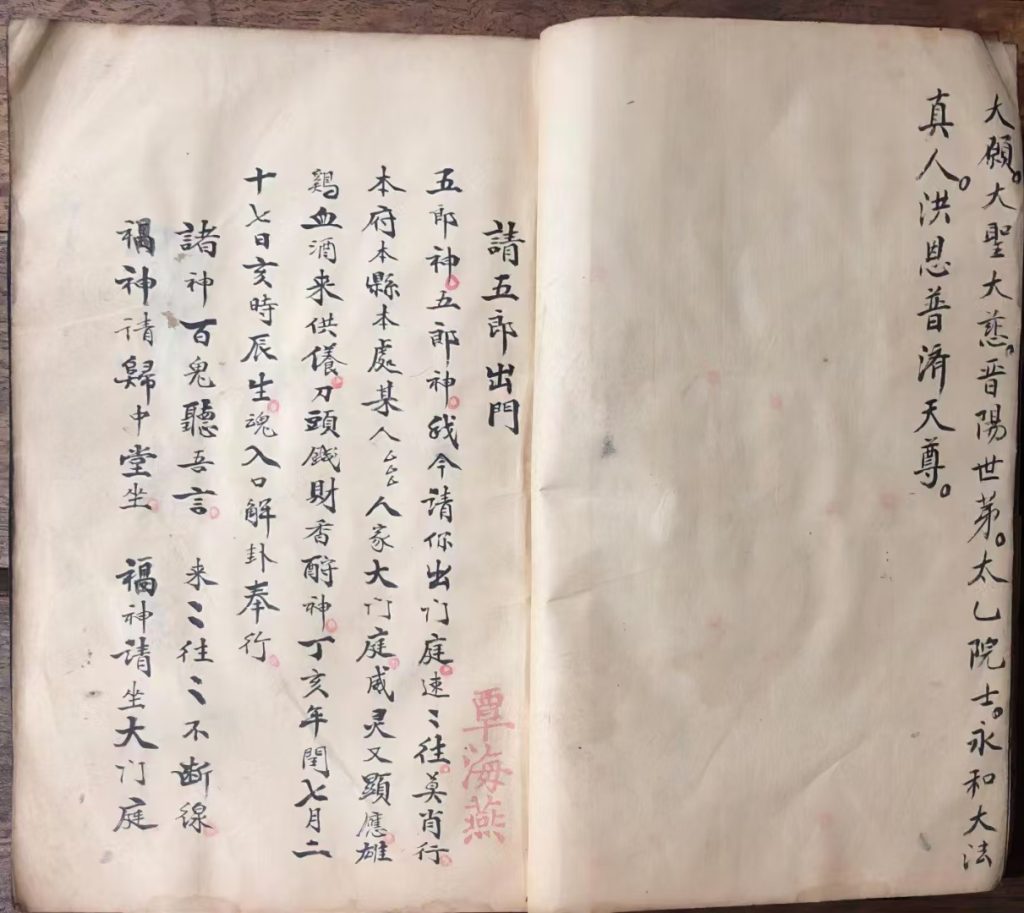 大願。大聖大慈。晉陽世苐。太乙院士。永和大法
真人。洪恩普濟天尊。
請五郎出門
覃海燕
五郎神。五郎神。我今請你出门庭。速〻往。莫肖行。
本府本縣本處某人厶厶人家大门庭。威灵又顯應。雄
鷄血酒来供儀。刀頭錢財香酧神。丁亥年閏七月二
十七日亥時辰生。魂入口解卦奉行。
諸神百鬼聽吾言。来〻往〻不断線。
福神請歸中堂坐。福神請坐大门庭